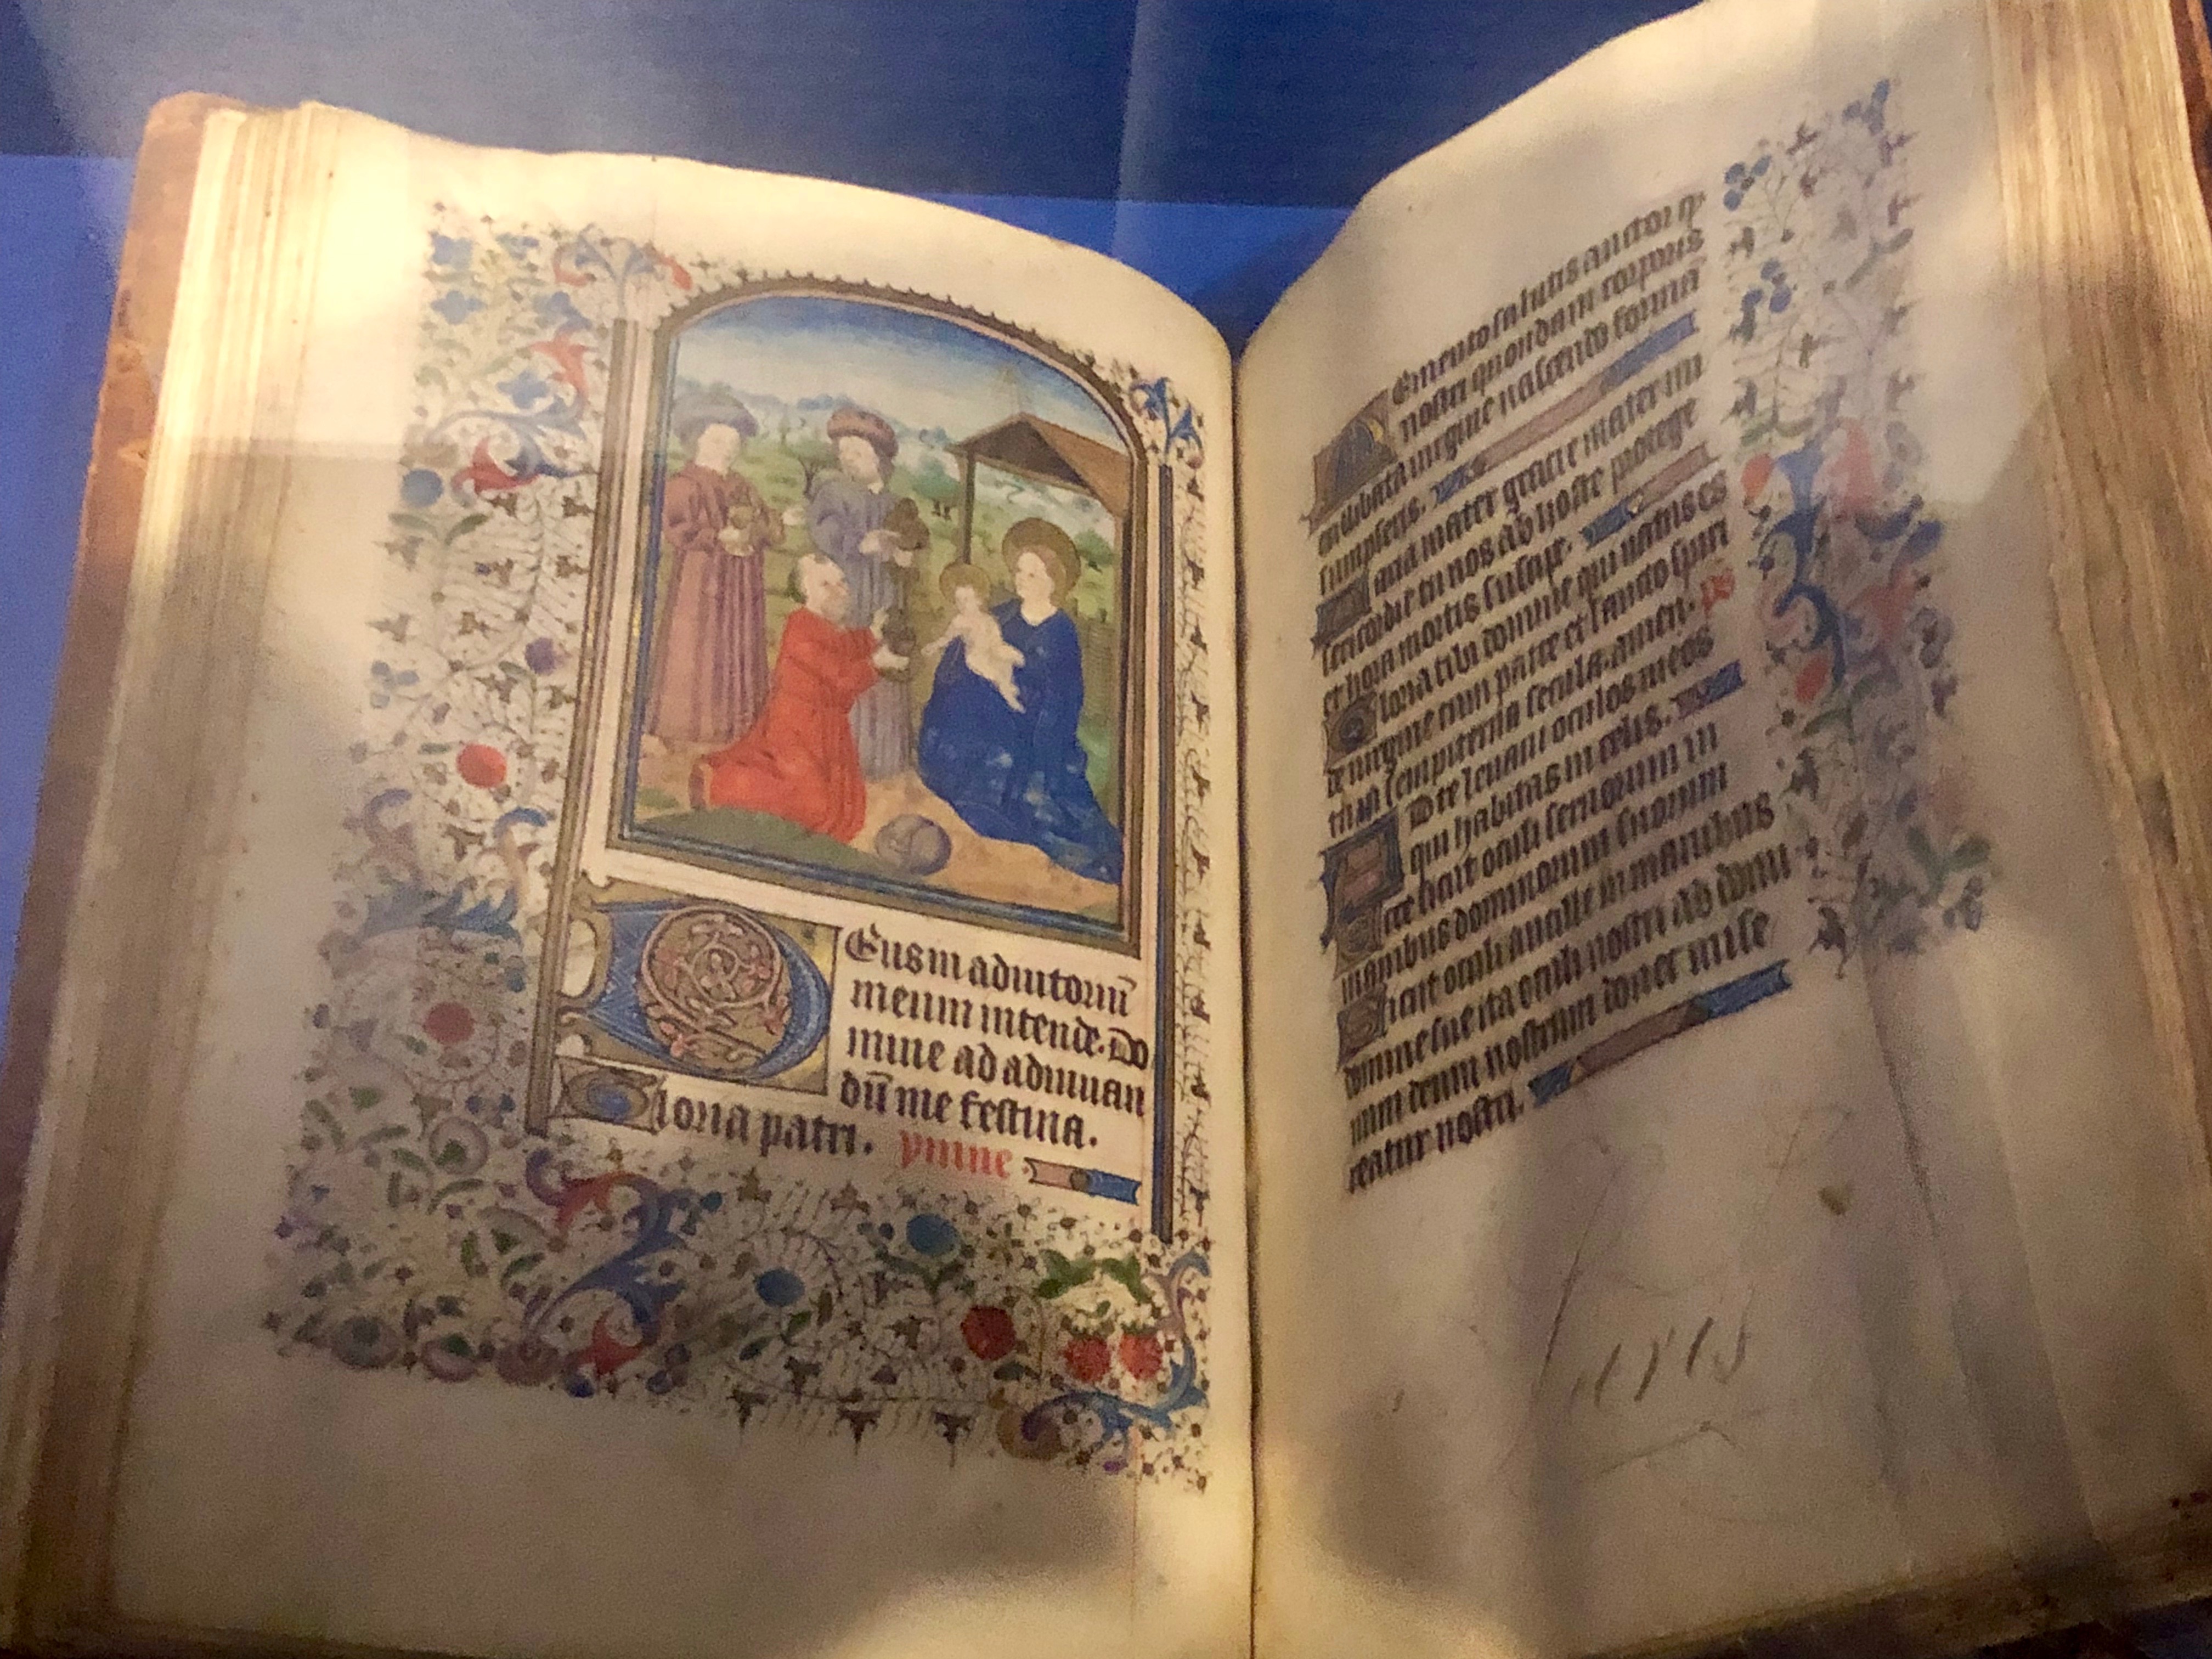 Eus in adiutoriū
meum intende. Do
mine ad adiuuan
dū me festina.
loria patri. ymne
Emento salutis auctor q
nostri quondam corporis
ex illibata uirgine nascendo forma
sumpseris.
aria mater gracie mater mi
sericordie tu nos ab hoste protege
et hora mortis suscipe.
loria tibi domine qui natus es
de uirgine cum patre et sancto spiri
tu in sempiterna secula. amen. ps
D te leuaui oculos meos
qui habitas in celis.
cce sicut oculi seruorum in
manibus dominorum suorum
icut oculi ancille in manibus
domine sue ita oculi nostri ad domi
num deum nostrum donec mise
reatur nostri.